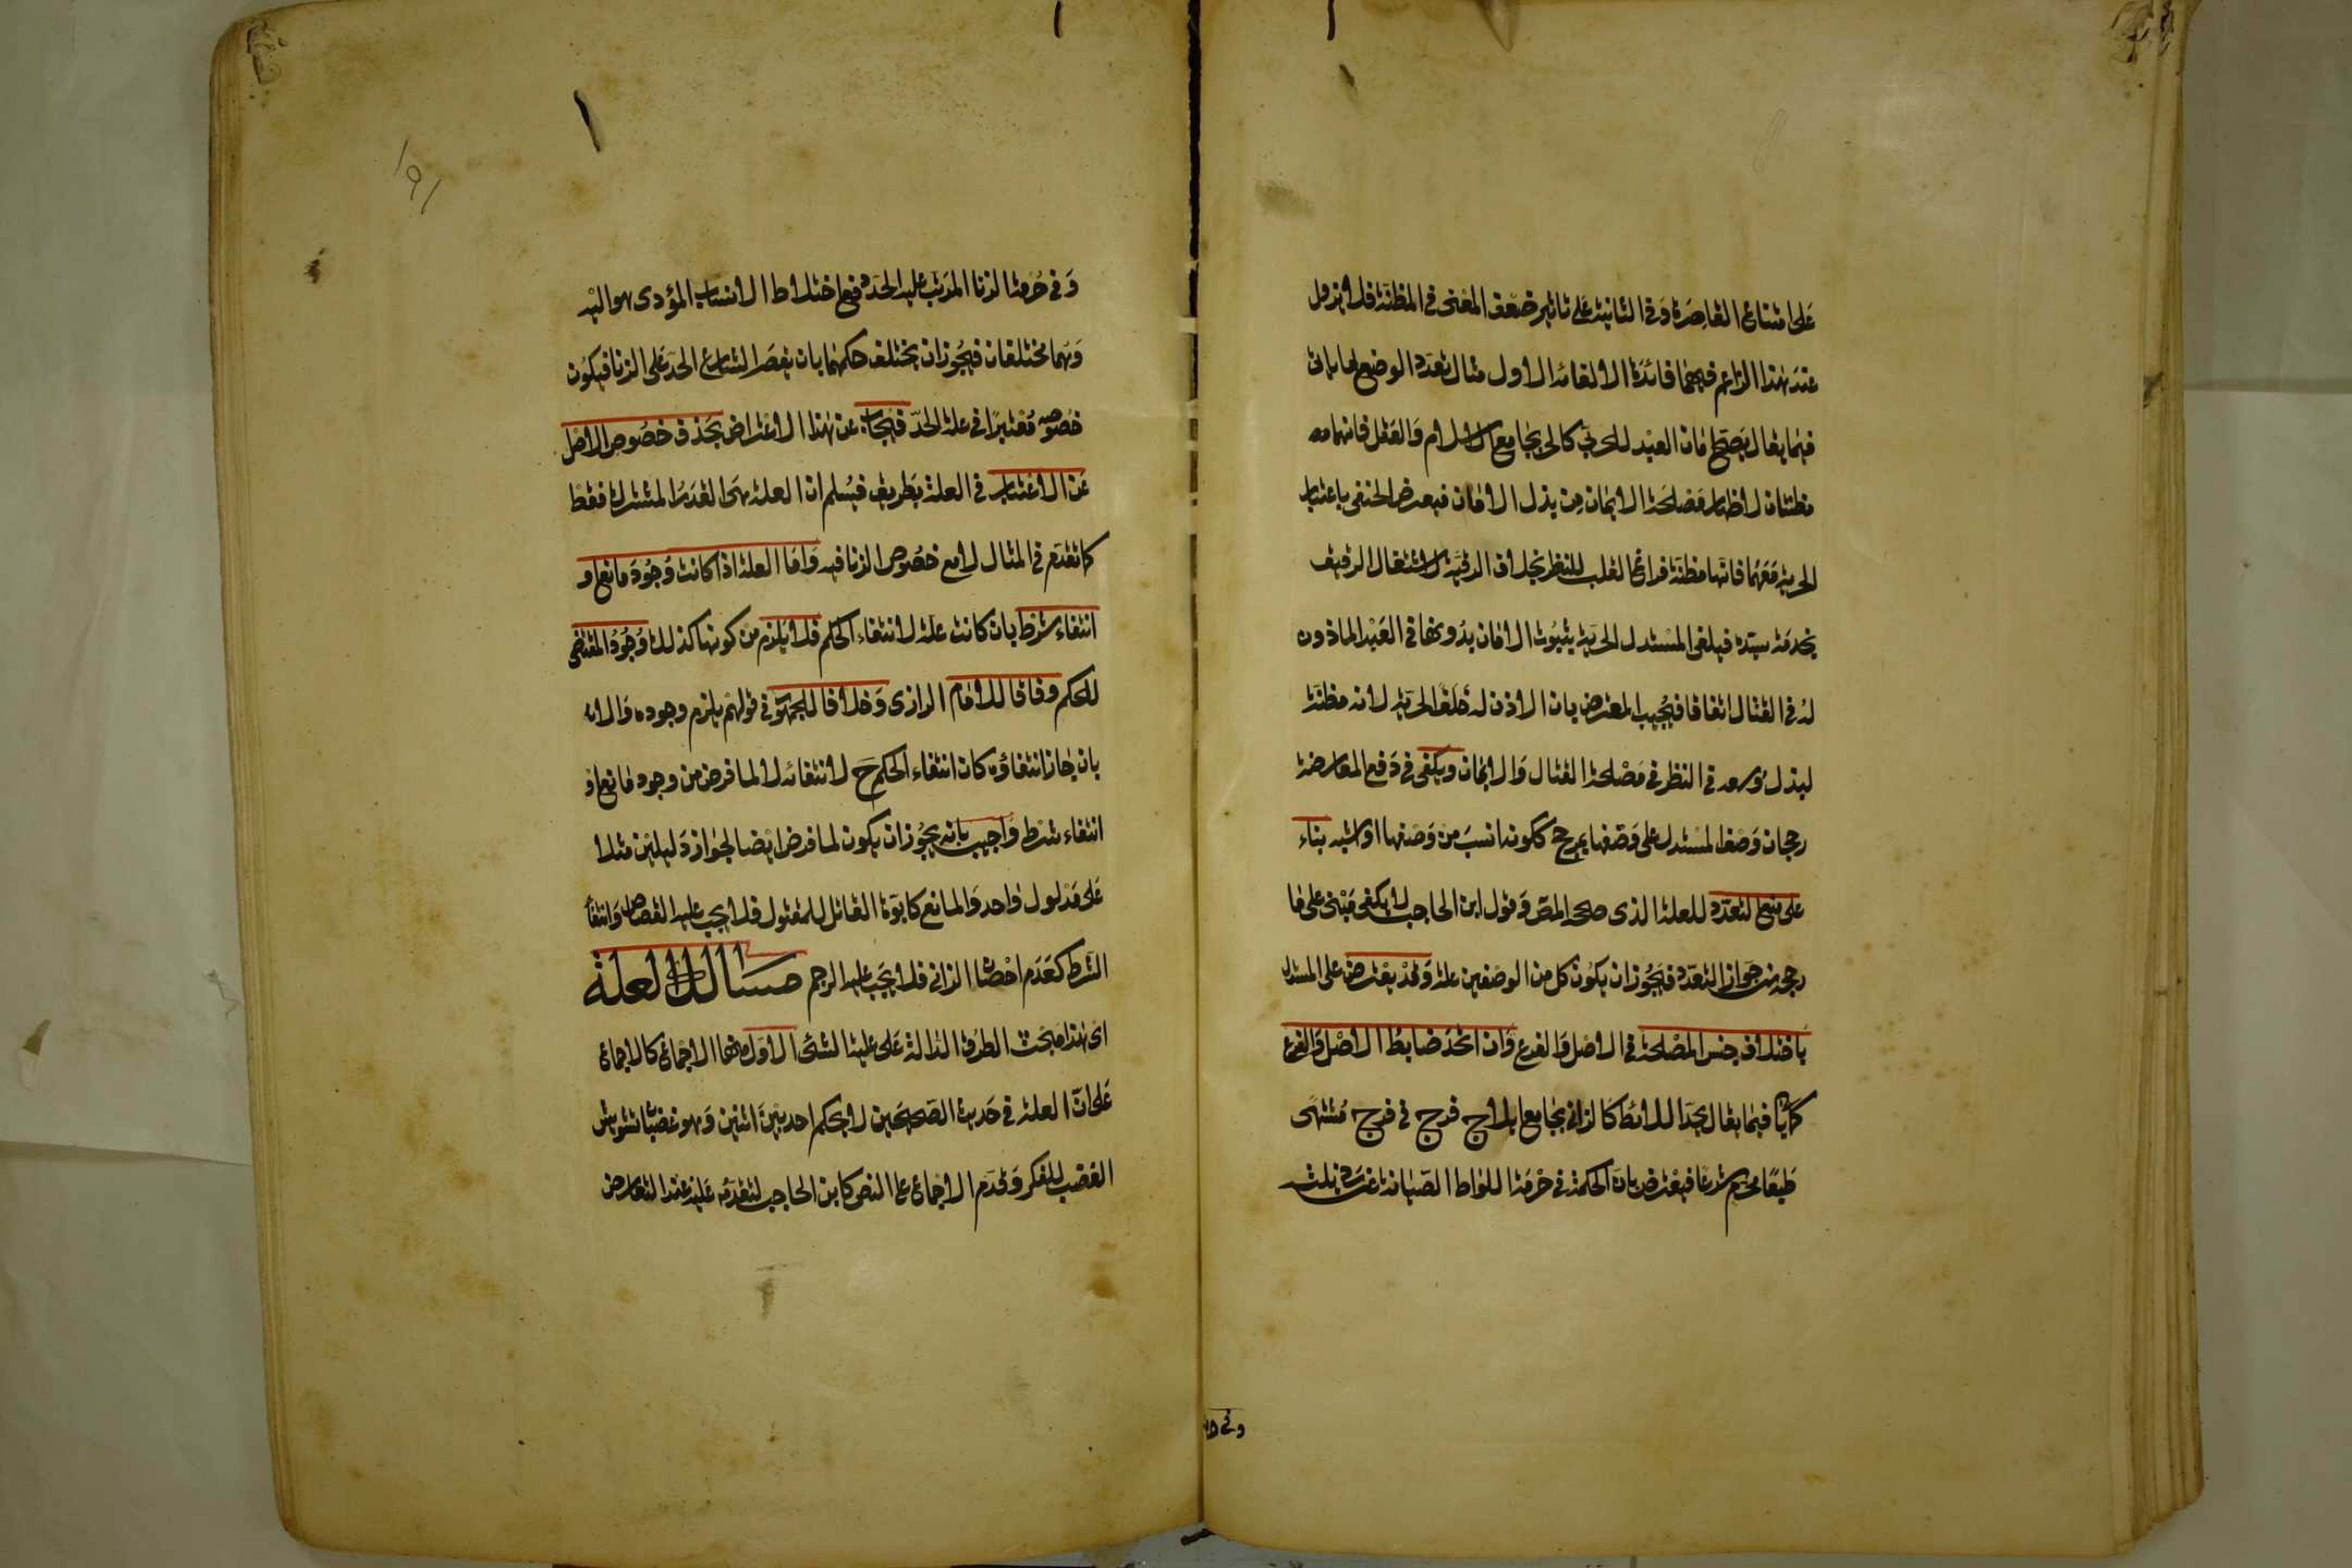 على امتناع القاصرة وفى الثانية على تاثير ضعف المعنى فى المظنة فلا يزول
عند هذا الزاعم فيهما فائدة الالغاء الاول مثال تعدد الوضع لما ياتى
فيما يقال يصح امان العبد للحربي كالحر بجامع الاسلام والعقل فانهما
مظنتان لاظهار مصلحة الايمان من بذل الامان فيعترض الحنفى باعتبار
الحرية معهما فانها مظنة فراغ القلب للنظر بخلاف الرقية لاشتغال الرقيق
بخدمة سيده فيلغى المستدل الحرية بثبوت الامان بدونها فى العبد الماذون
له فى القتال اتفاقا فيجيب المعترض بان الاذن له خلف الحرية لانه مظنة
لبذل وسعه فى النظر فى مصلحة القتال والايمان ويكفى فى دفع المعارضة
رجحان وصف المستدل على وصفها بمرجح ككونه انسب من وصفها او اشبه بناء
على منع التعدد للعلة الذى صححه المص وقول ابن الحاجب لا يكفى مبنى على ما
رجحه من جواز التعدد فيجوز ان يكون كل من الوصفين علة وقد يعترض على المستدل
باختلاف جنس المصلحة فى الاصل والفرع وان اتحد ضابط الاصل والفرع
كما ياتى فيما يقال يحد اللائط كالزانى بجامع ايلاج فرج فى فرج مشتهى
طبعا محرم شرعا فيعترض بان الحكمة فى حرمة اللواط الصيانة عن رذيلته
وفى حرمة الزنا المرتب عليه الحد دفع اختلاط الانساب المؤدى هو اليه
وهما مختلفان فيجوز ان يختلف حكمهما بان يقصر الشارع الحد على الزنا فيكون
خصوصه معتبرا فى علة الحد فيجاب عن هذا الاعتراض بحذف خصوص الاصل
عن الاعتبار فى العلة بطريق فيسلم ان العلة هى القدر المشترك فقط
كما تقدم فى المثال لا مع خصوص الزنا فيه واما العلة اذا كانت وجود مانع او
انتفاء شرط بان كانت علة لانتفاء الحكم فلا يلزم من كونها كذلك وجود المقتضى
للحكم وفاقا للامام الرازى وخلافا للجمهور فى قولهم يلزم وجوده والا
بان جاز انتفاؤه كان انتفاء الحكم ح لانتفائه لا لما فرض من وجود مانع او
انتفاء شرط واجيب بانه يجوز ان يكون لما فرض ايضا لجواز دليلين مثلا
على مدلول واحد والمانع كابوة القاتل للمقتول فلا يجب عليه القصاص وانتفاء
الشرط كعدم احصان الزانى فلا يجب عليه الرجم مسالك العلة
اى هذا مبحث الطرق الدالة على علية الشئ الاول منها الاجماع كالاجماع
على ان العلة فى حديث الصحيحين لا يحكم احد بين اثنين وهو غضبان تشويش
الغضب للفكر وقدم الاجماع على النص كابن الحاجب لتقدمه عليه عند التعارض